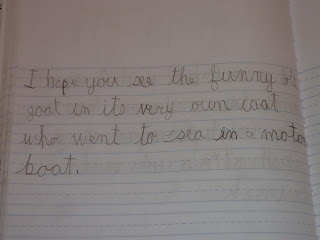 I hope you see the funny old
goat in its very own coat
who went to sea in a motor
boat.